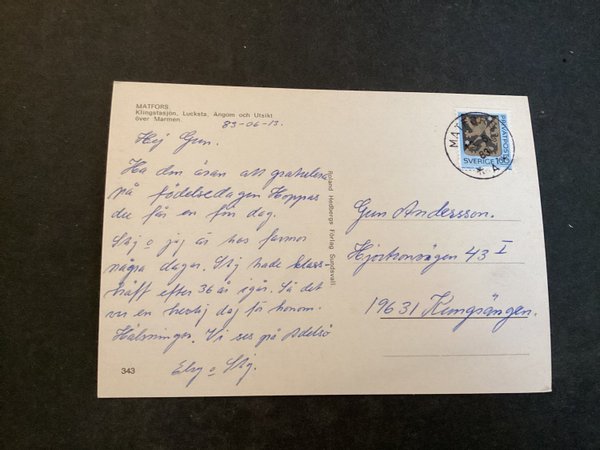 MATFORS.
Klingstasjön, Lucksta, Ångom och Utsikt
över Marmen.
83-06-13.
Hej Gun.
Ha den äran att gratulera
på födelsedagen Hoppas
du får en fin dag.
Stig o jag är hos farmor
några dagar. Stig hade klass-
träff efter 36 år igår. Så det
var en härlig dag för honom.
Hälsningar. Vi ses på Adelsö
Elsy o Stig.
343
Roland Hedbergs Förlag Sundsvall
PRIVATPOST
SVERIGE
MAT
Gun Andersson.
Hjortronvägen 43 I
19631 Kungsängen.